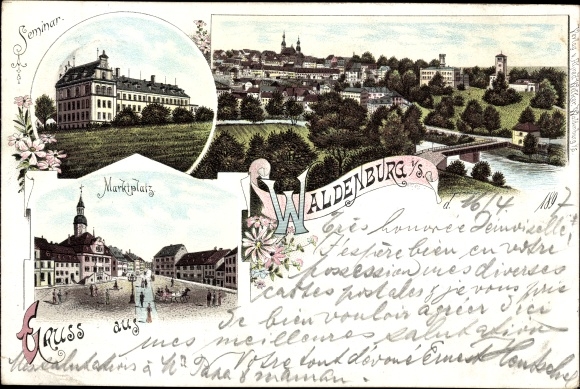 Seminar.
Marktplatz
WALDENBURG i/S.
d. 16/4 1897
GRUSS aus
Très honorée Demoiselle!
J'espère bien en votre
possession mes diverses
cartes postales & je vous prie
de bien vouloir agréer d'ici
mes meilleures salutations
Votre tout dévoué Ernest
Mes salutations à Mr Papa & maman